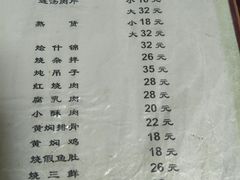 连汤肉片 小 18 元
大 32 元
熟货 小 18 元
大 32 元
烩什锦 32 元
烧杂拌 26 元
炖吊子 35 元
红烧肉 28 元
腐乳肉 28 元
小酥肉 20 元
黄焖排骨 22 元
黄焖鸡 18 元
烧假鱼肚 18 元
烧三鲜 26 元